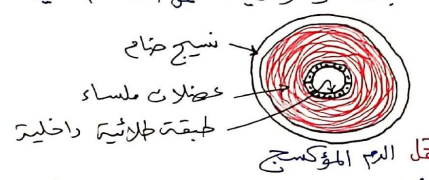 نسيج ضام
عضلات ملساء
طبقة طلائية داخلية
قل الدم المؤكسج